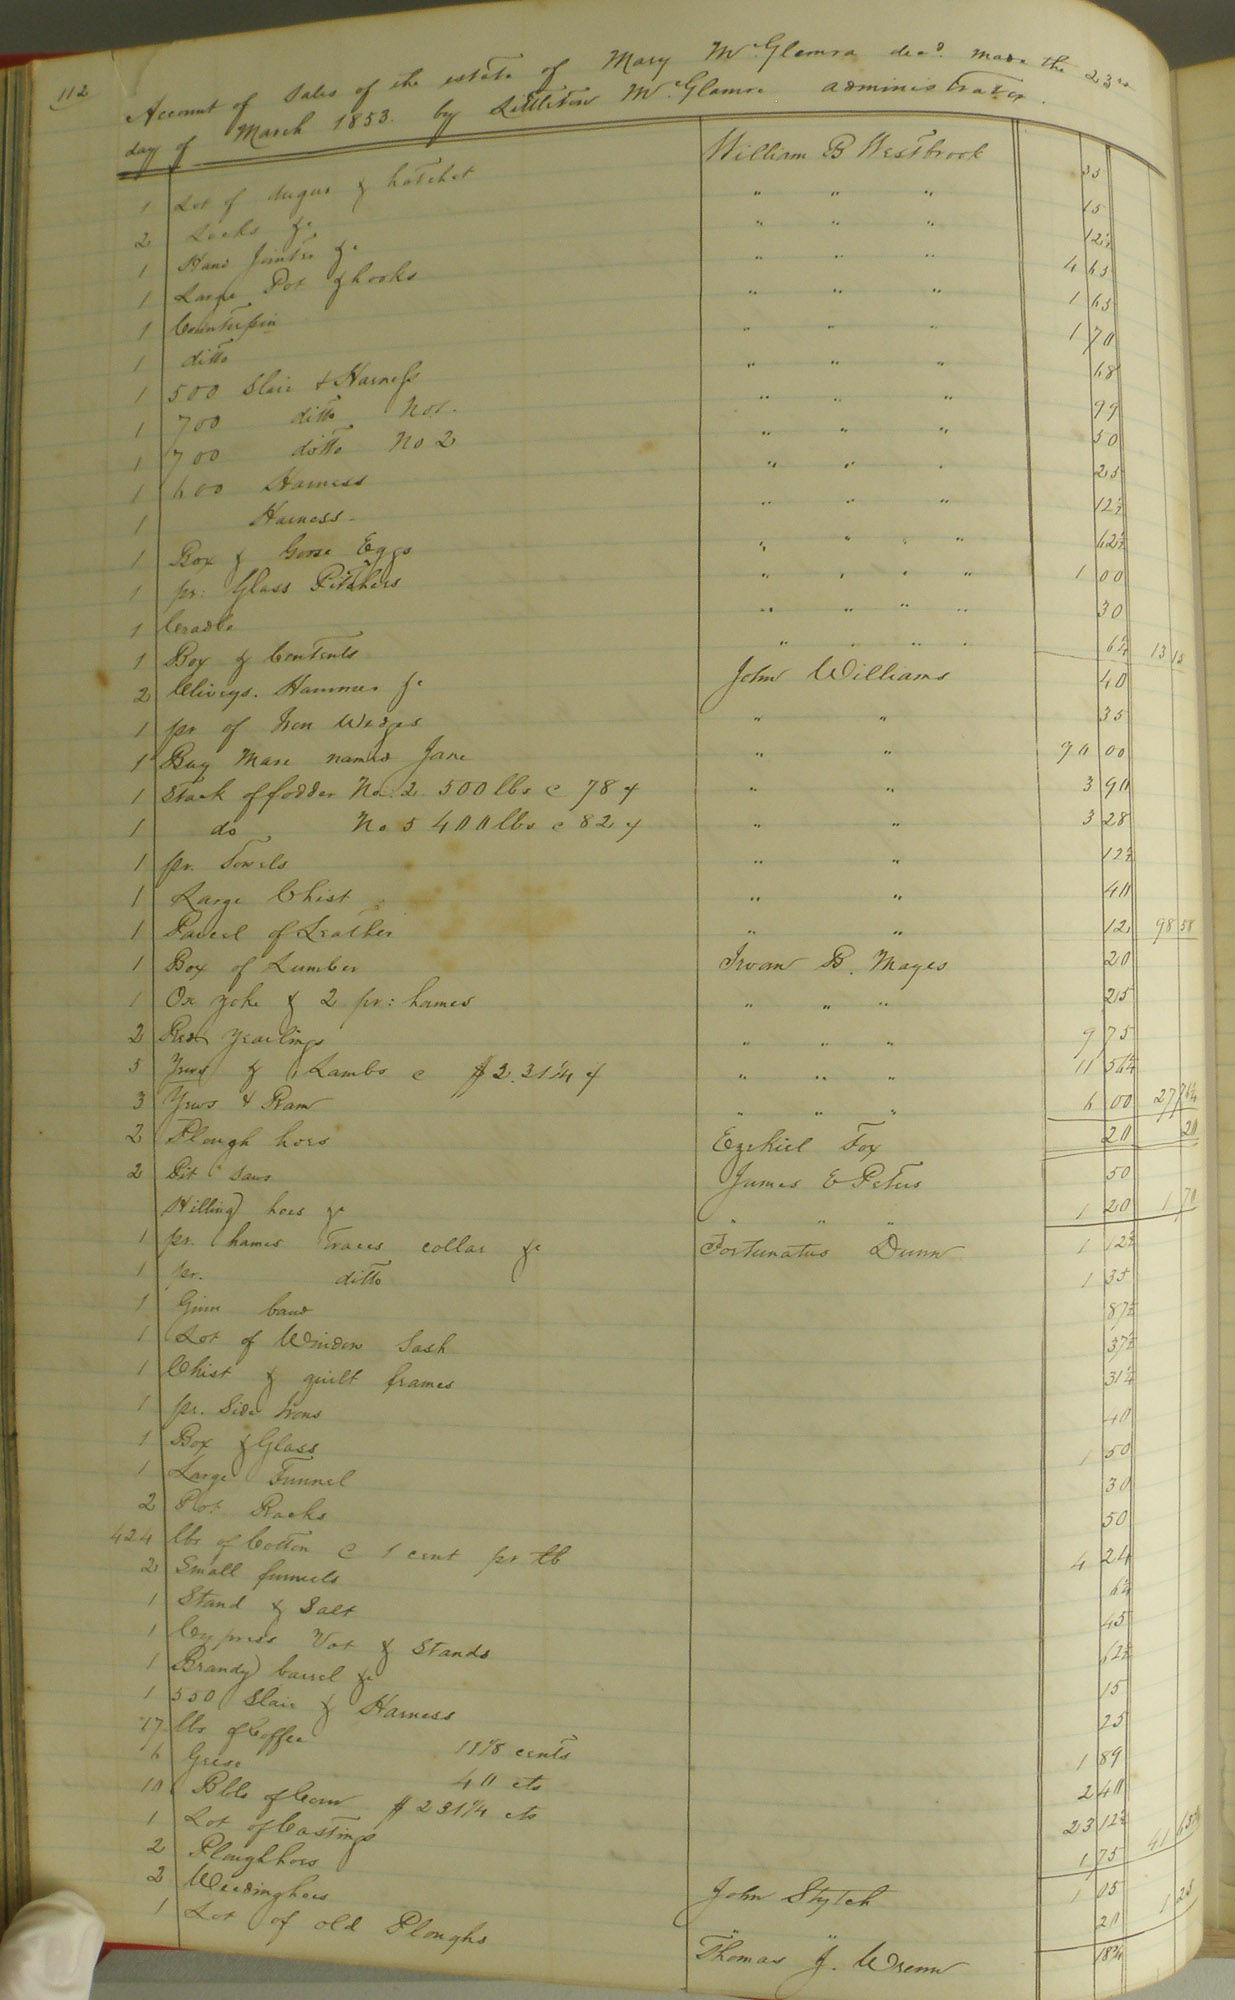 112
Account of Sales of the estate of Mary McGlamra decd. made the 23rd
day of March 1853. by Littleton McGlamre administrator.
1 Lot of Augus & hatchet William B Westbrook 35
2 Locks &c " " " 15
1 Hand Jointer &c " " " 12½
1 Large Pot & hooks " " " 4 65
1 Counterpin " " " 1 65
1 ditto " " " 1 70
1 500 Slaie & Harness " " " 68
1 700 ditto No1. " " " 99
1 700 ditto No 2 " " " 50
1 600 Harness " " " 25
1 Harness " " " 12½
1 Box & Goose Eggs " " " " 62½
1 pr: Glass Pitchers " " " " 1 00
1 Cradle " " " " 30
1 Box & Contents " " " " 6¼ 13 15
2 Cliveys. Hammer &c John Williams 40
1 pr of Iron Wedges " " 35
1 Bay Mare named Jane " " 90 00
1 Stack of fodder No. 2 500 lbs @ 78 " " 3 90
1 do No 5 400 lbs @ 82 " " 3 28
1 pr. Towels " " 12½
1 Large Chist " " 40
1 Parcel of Leather " " 12½ 98 58
1 Box of Lumber Irvan B. Mayes 20
1 Ox yoke & 2 pr: hames " " " 25
2 Red Yearlings " " " 9 75
5 Yews & Lambs @ $2.31¼ " " " 11 56¼
3 Yews & Ram " " " 6 00 27 76¼
2 Plough hoes Ezekiel Fox 20 20
2 Pit Saws James E Petus 50
Hilling hoes &c " " " 1 20 1 70
1 pr. hames Traces collar &c Fortunatus Dunn 1 12½
1 pr. ditto 1 35
1 Ginn band 87½
1 Lot of Window Sash 37½
1 Chist & quilt frames 31¼
1 pr. Side Irons 40
1 Box & Glass 1 50
1 Large Funnel 30
2 Pot Racks 50
424 lbs of Cotton @ 1 cent pr lb 4 24
2 Small funnels 6¼
1 Stand & Salt 45
1 Cypress Vat & Stands 62½
1 Brandy barrel &c 15
1 550 Slaie & Harness 25
17 lbs of Coffee 11⅛ cents 1 89
6 Geese 40 cts 2 40
10 Bbls of Corn $2 31¼ cts 23 12½
1 Lot of Castings 1 75 41
2 Ploughhoes John Stytch 1 05
2 Weedinghoes " " 20 1 25
1 Lot of old Ploughs Thomas J. Wrenn 18¾